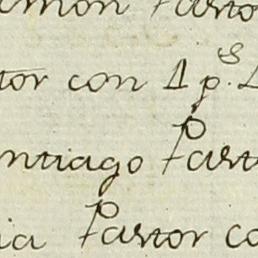 amon Pastor
tor con 1 p.s
ntiago Pasto
ia Pastor co